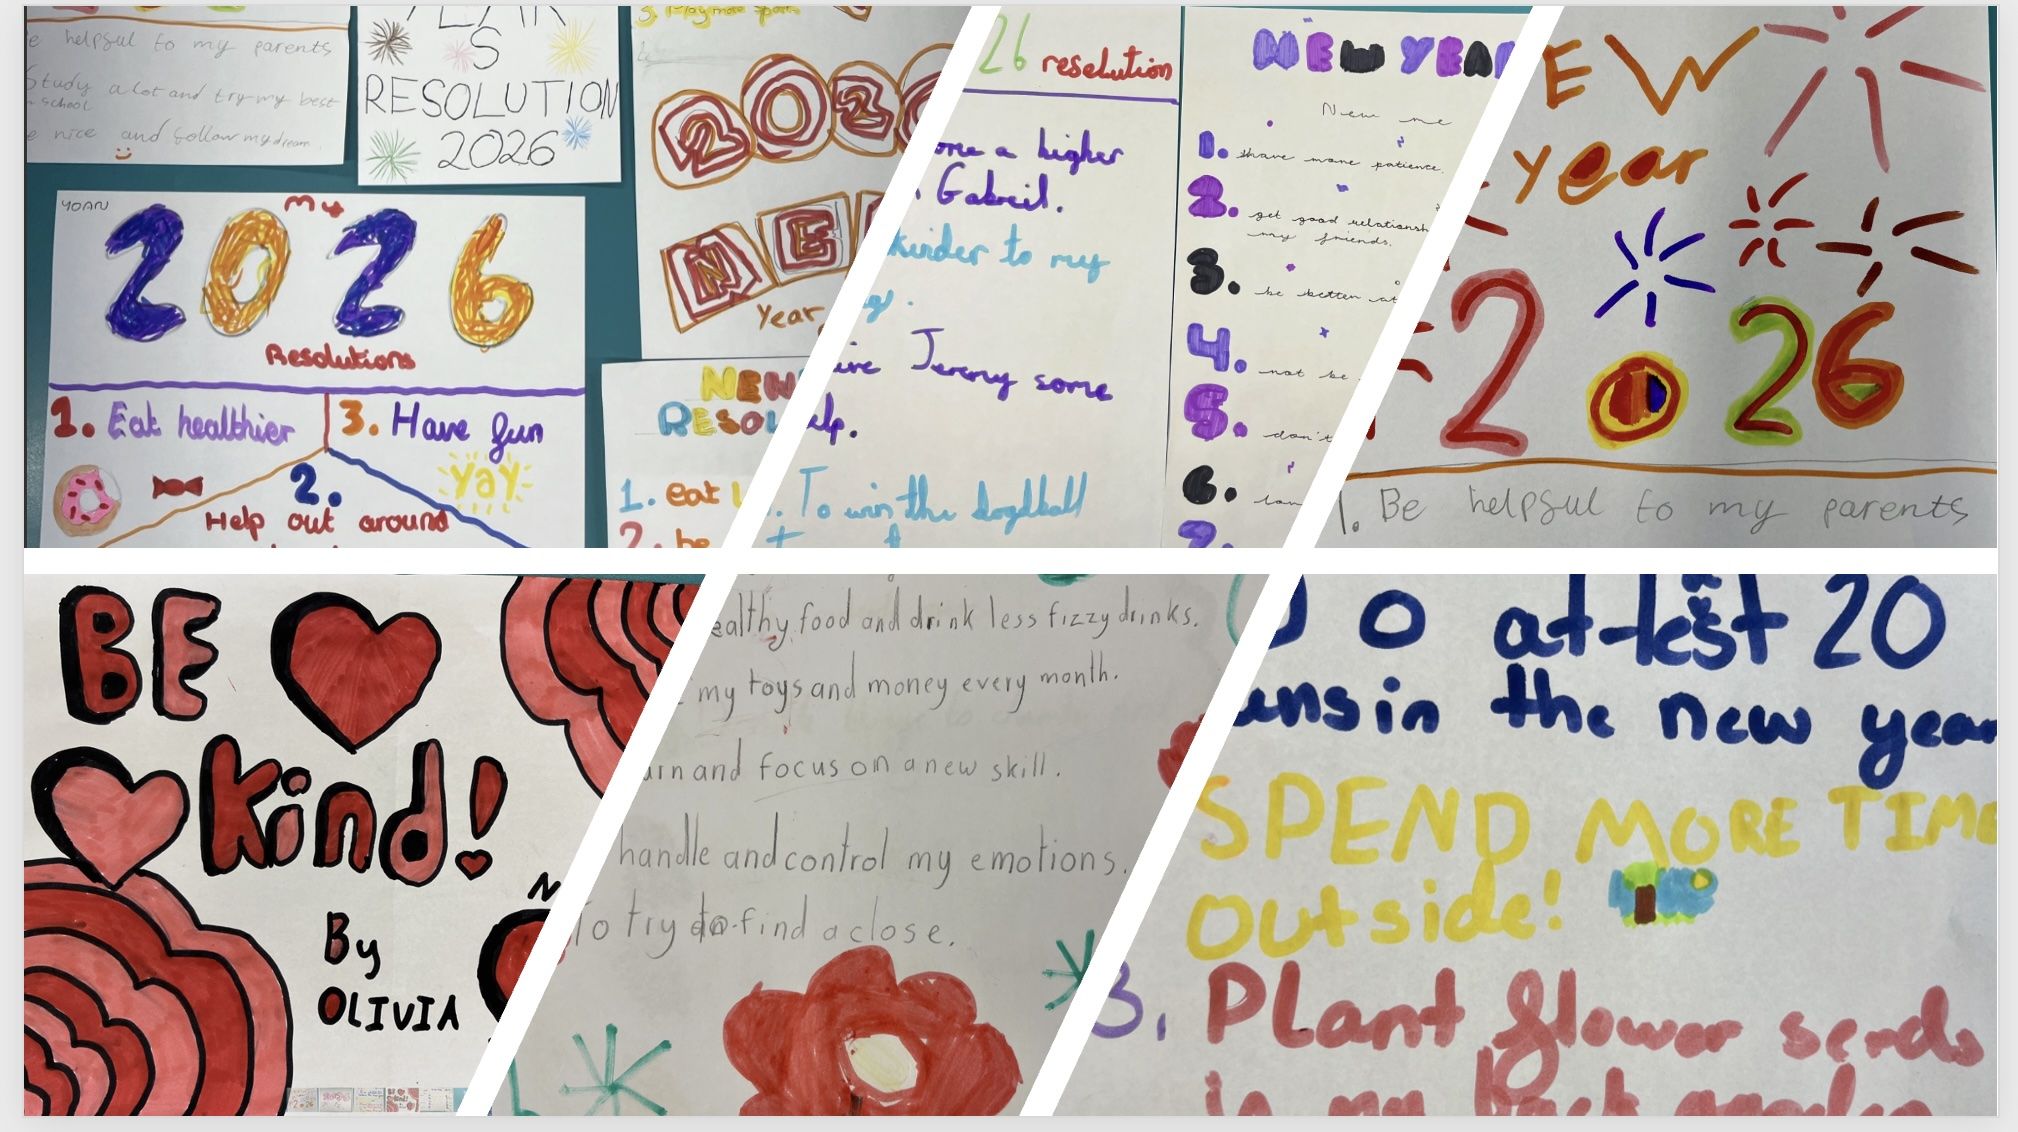 e helpsul to my parents
Study a lot and try my best
school
e nice and follow my dream.
YEAR
S
RESOLUTION
2026
5. Play more sports
202
NE
Year
YOAN
My
2026
Resolutions
1. Eat healthier
3. Have fun
yay
2.
Help out around
NEW
RESOL
1. eat
2. be
26 resolution
ome a higher
Gabriel.
kinder to my
ive Jeremy some
elp.
To win the dogdball
NEW YEAR
New me
1. have more patience.
2. get good relationsh
my friends.
3. be better at
4. not be
5. don't
6.
7.
EW
year
2026
1. Be helpsul to my parents
BE
kind!
By
OLIVIA
N
ealthy food and drink less fizzy drinks.
my toys and money every month.
arn and focus on a new skill.
handle and control my emotions.
To try to find a close.
DO at-lest 20
uns in the new year
SPEND MORE TIME
Outside!
3. Plant flower seeds
in my back garden